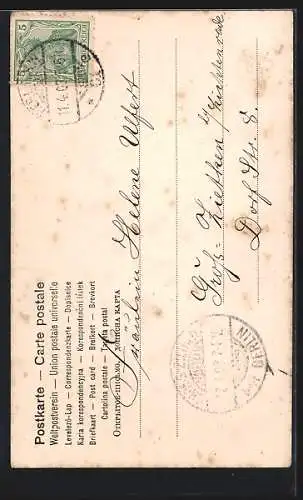 Postkarte — Carte postale
Weltpostverein — Union postale universelle
Levelező-Lap — Correspondenzkarte — Dopisnice
Karta korespondencyjna — Korespondenční lístek
Briefkaart — Post card — Brefkort — Brevkort
Cartolina postale — Tarjeta postal
ОТКРЫТОЕ ПИСЬМО.
КАРТА
5
11.4.0
Fräulein Helene Ulfert
Groß-Ziethen
Dorf Str. 8.